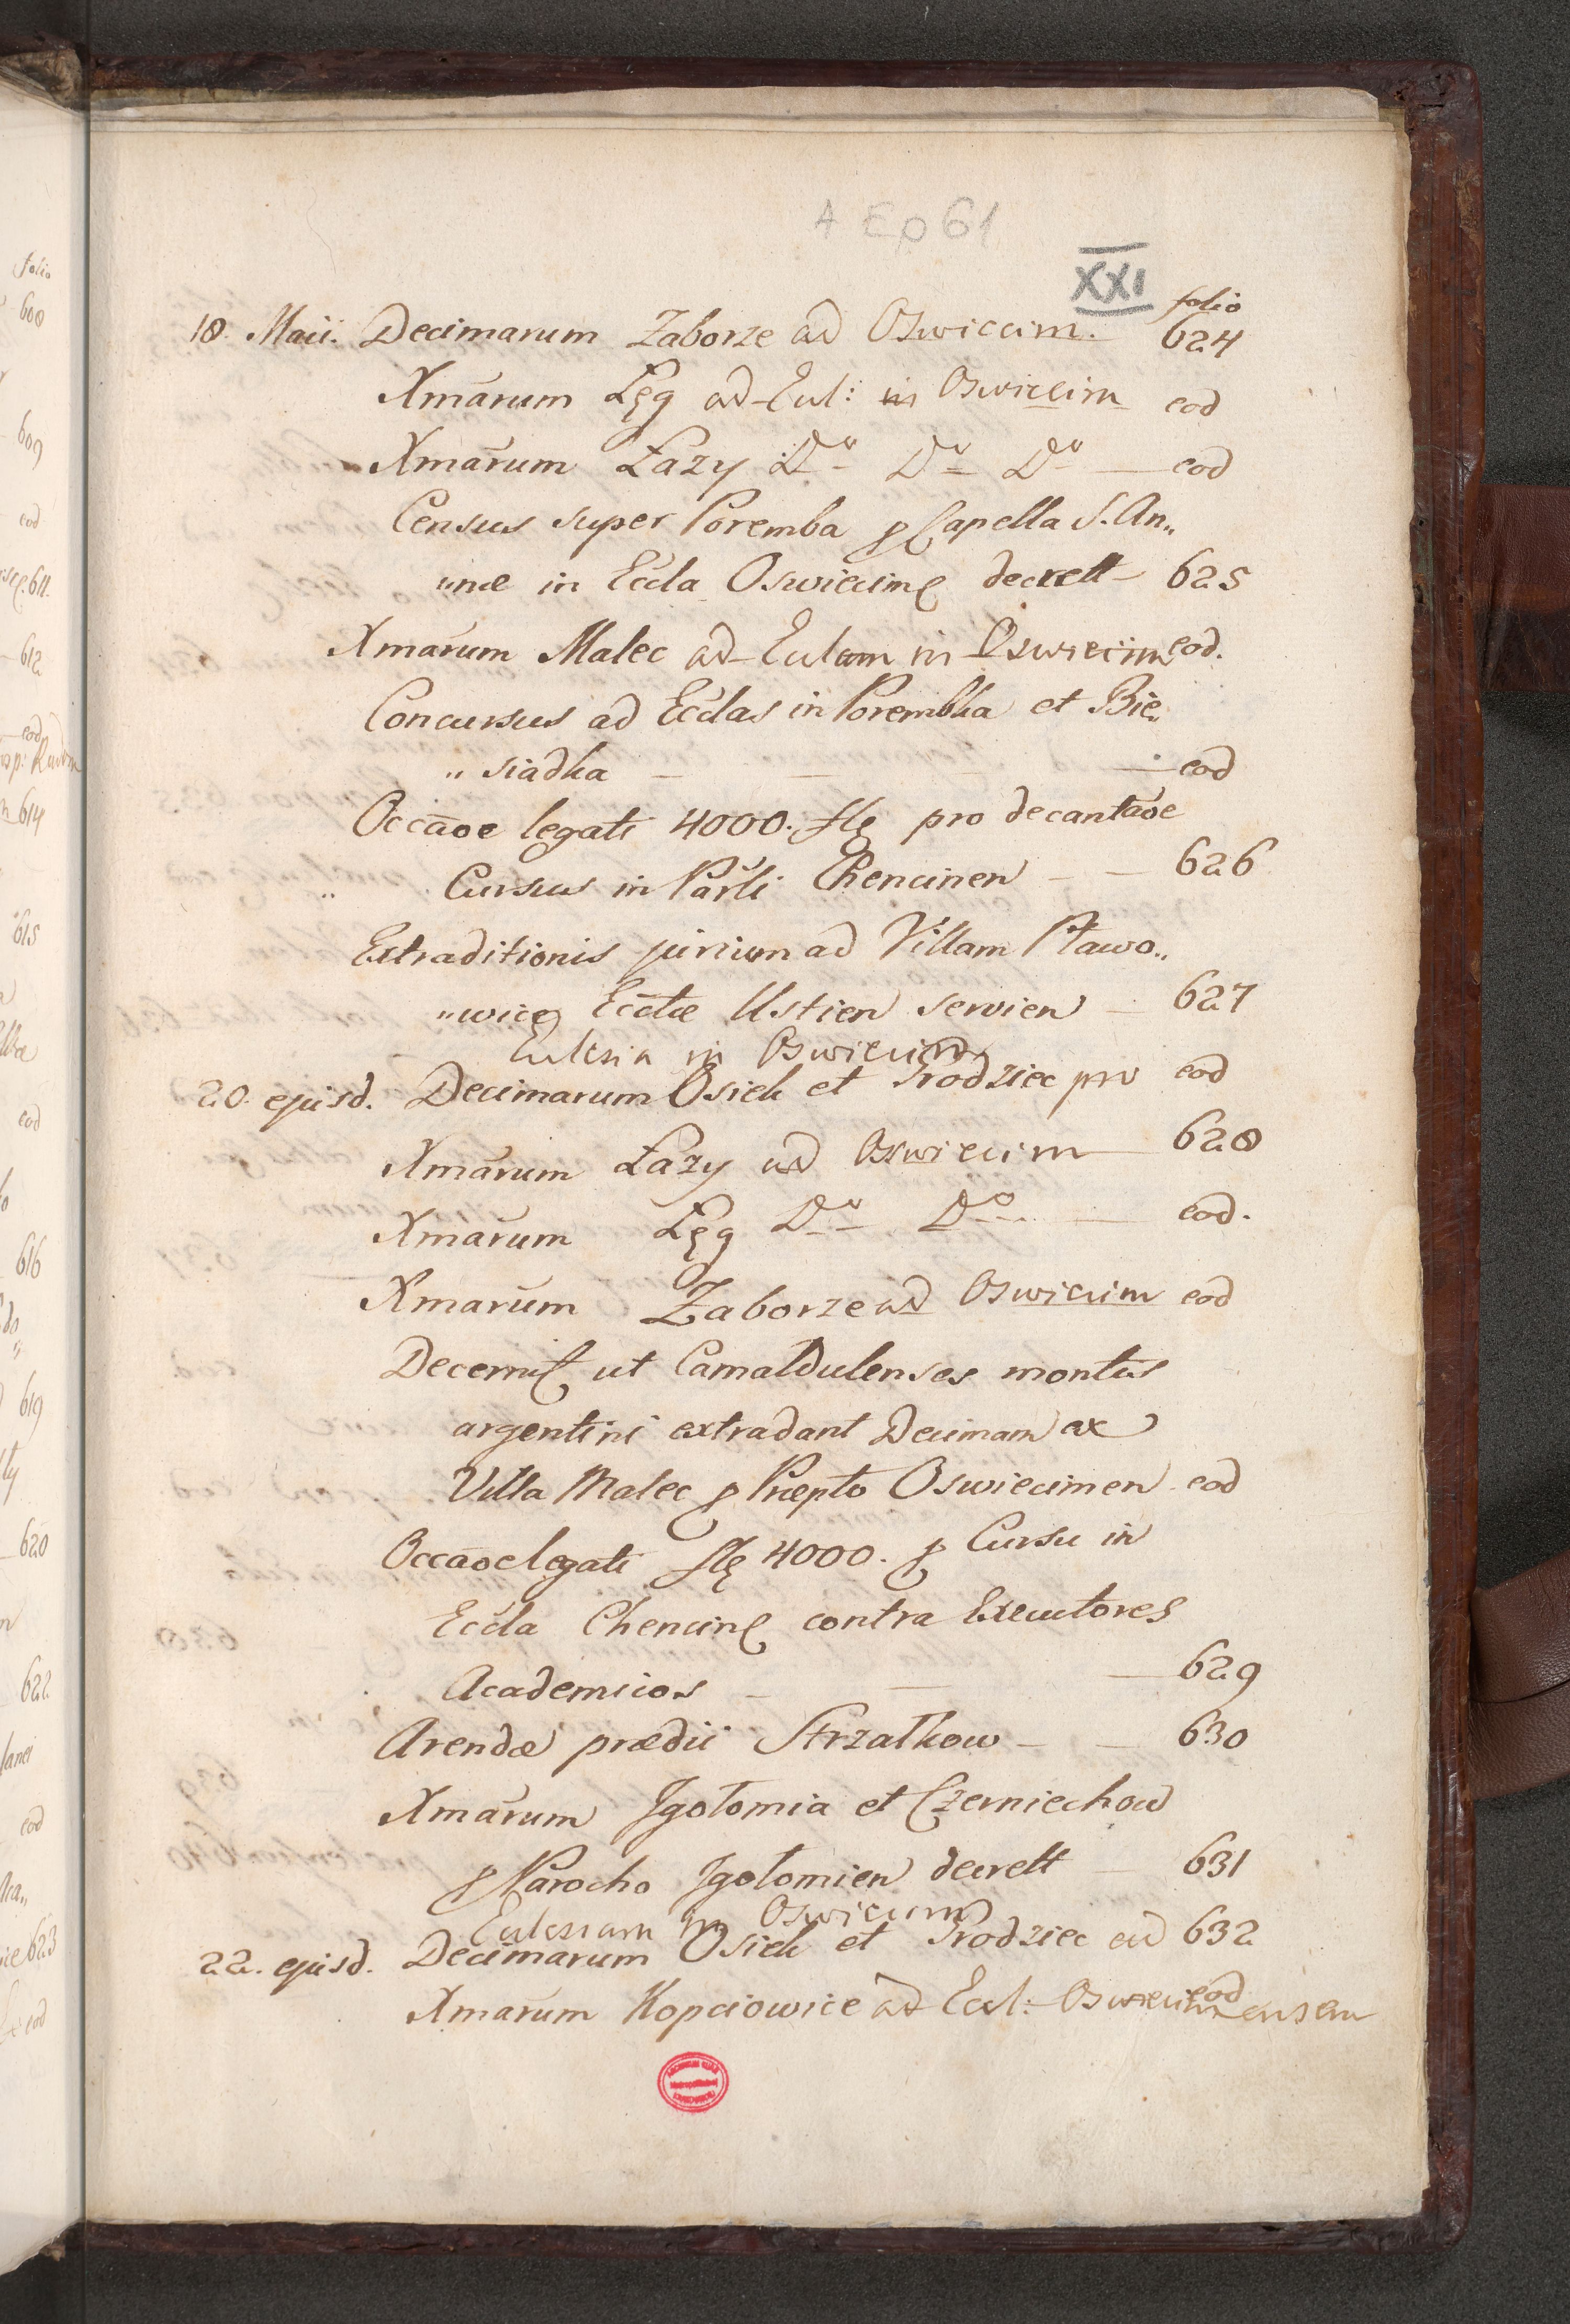 A Ep 61
XXI
folio
18. Maii. Decimarum Zaborze ad Oswiecim. 624
Xmarum Lęg ad Eccl: in Oswiecim eod
Xmarum Łazy Do Do Do — eod
Census super Poremba p Capella S. An„
„næ in Eccla Oswiecim decrett — 625
Xmarum Malec ad Eccl​am in Oswiecim eod.
Concursus ad Ecclas in Porembka et Bie„
„siadka — — — eod
Occaōe legati 4000. fl pro decantaōe
Cursus in Parli Chencinen — — 626
Extraditionis jurium ad Villam Pławo„
„wice Ecclæ Ustien servien — 627
Ecclesia in Oswiecim
20. ejusd. Decimarum Osiek et Grodziec pro eod
Xmarum Łazy ad Oswiecim — 628
Xmarum Lęg Do Do — eod.
Xmarum Zaborze ad Oswiecim eod
Decernit ut Camaldulenses montis
argentini extradant Decimam ex
Villa Malec p Præpto Oswiecimen eod
Occaōe legati fl 4000. p Cursu in
Eccla Chencin contra Executores
Academicos — — — 629
Arendæ prædii Strzałkow — — 630
Xmarum Igołomia et Czerniechow
p Parocho Igołomien decrett — 631
Ecclesiam in Oswiecim
22. ejusd. Decimarum Osiek et Grodziec ad 632
Xmarum Kopciowice ad Eccl: Oswiecimensem eod